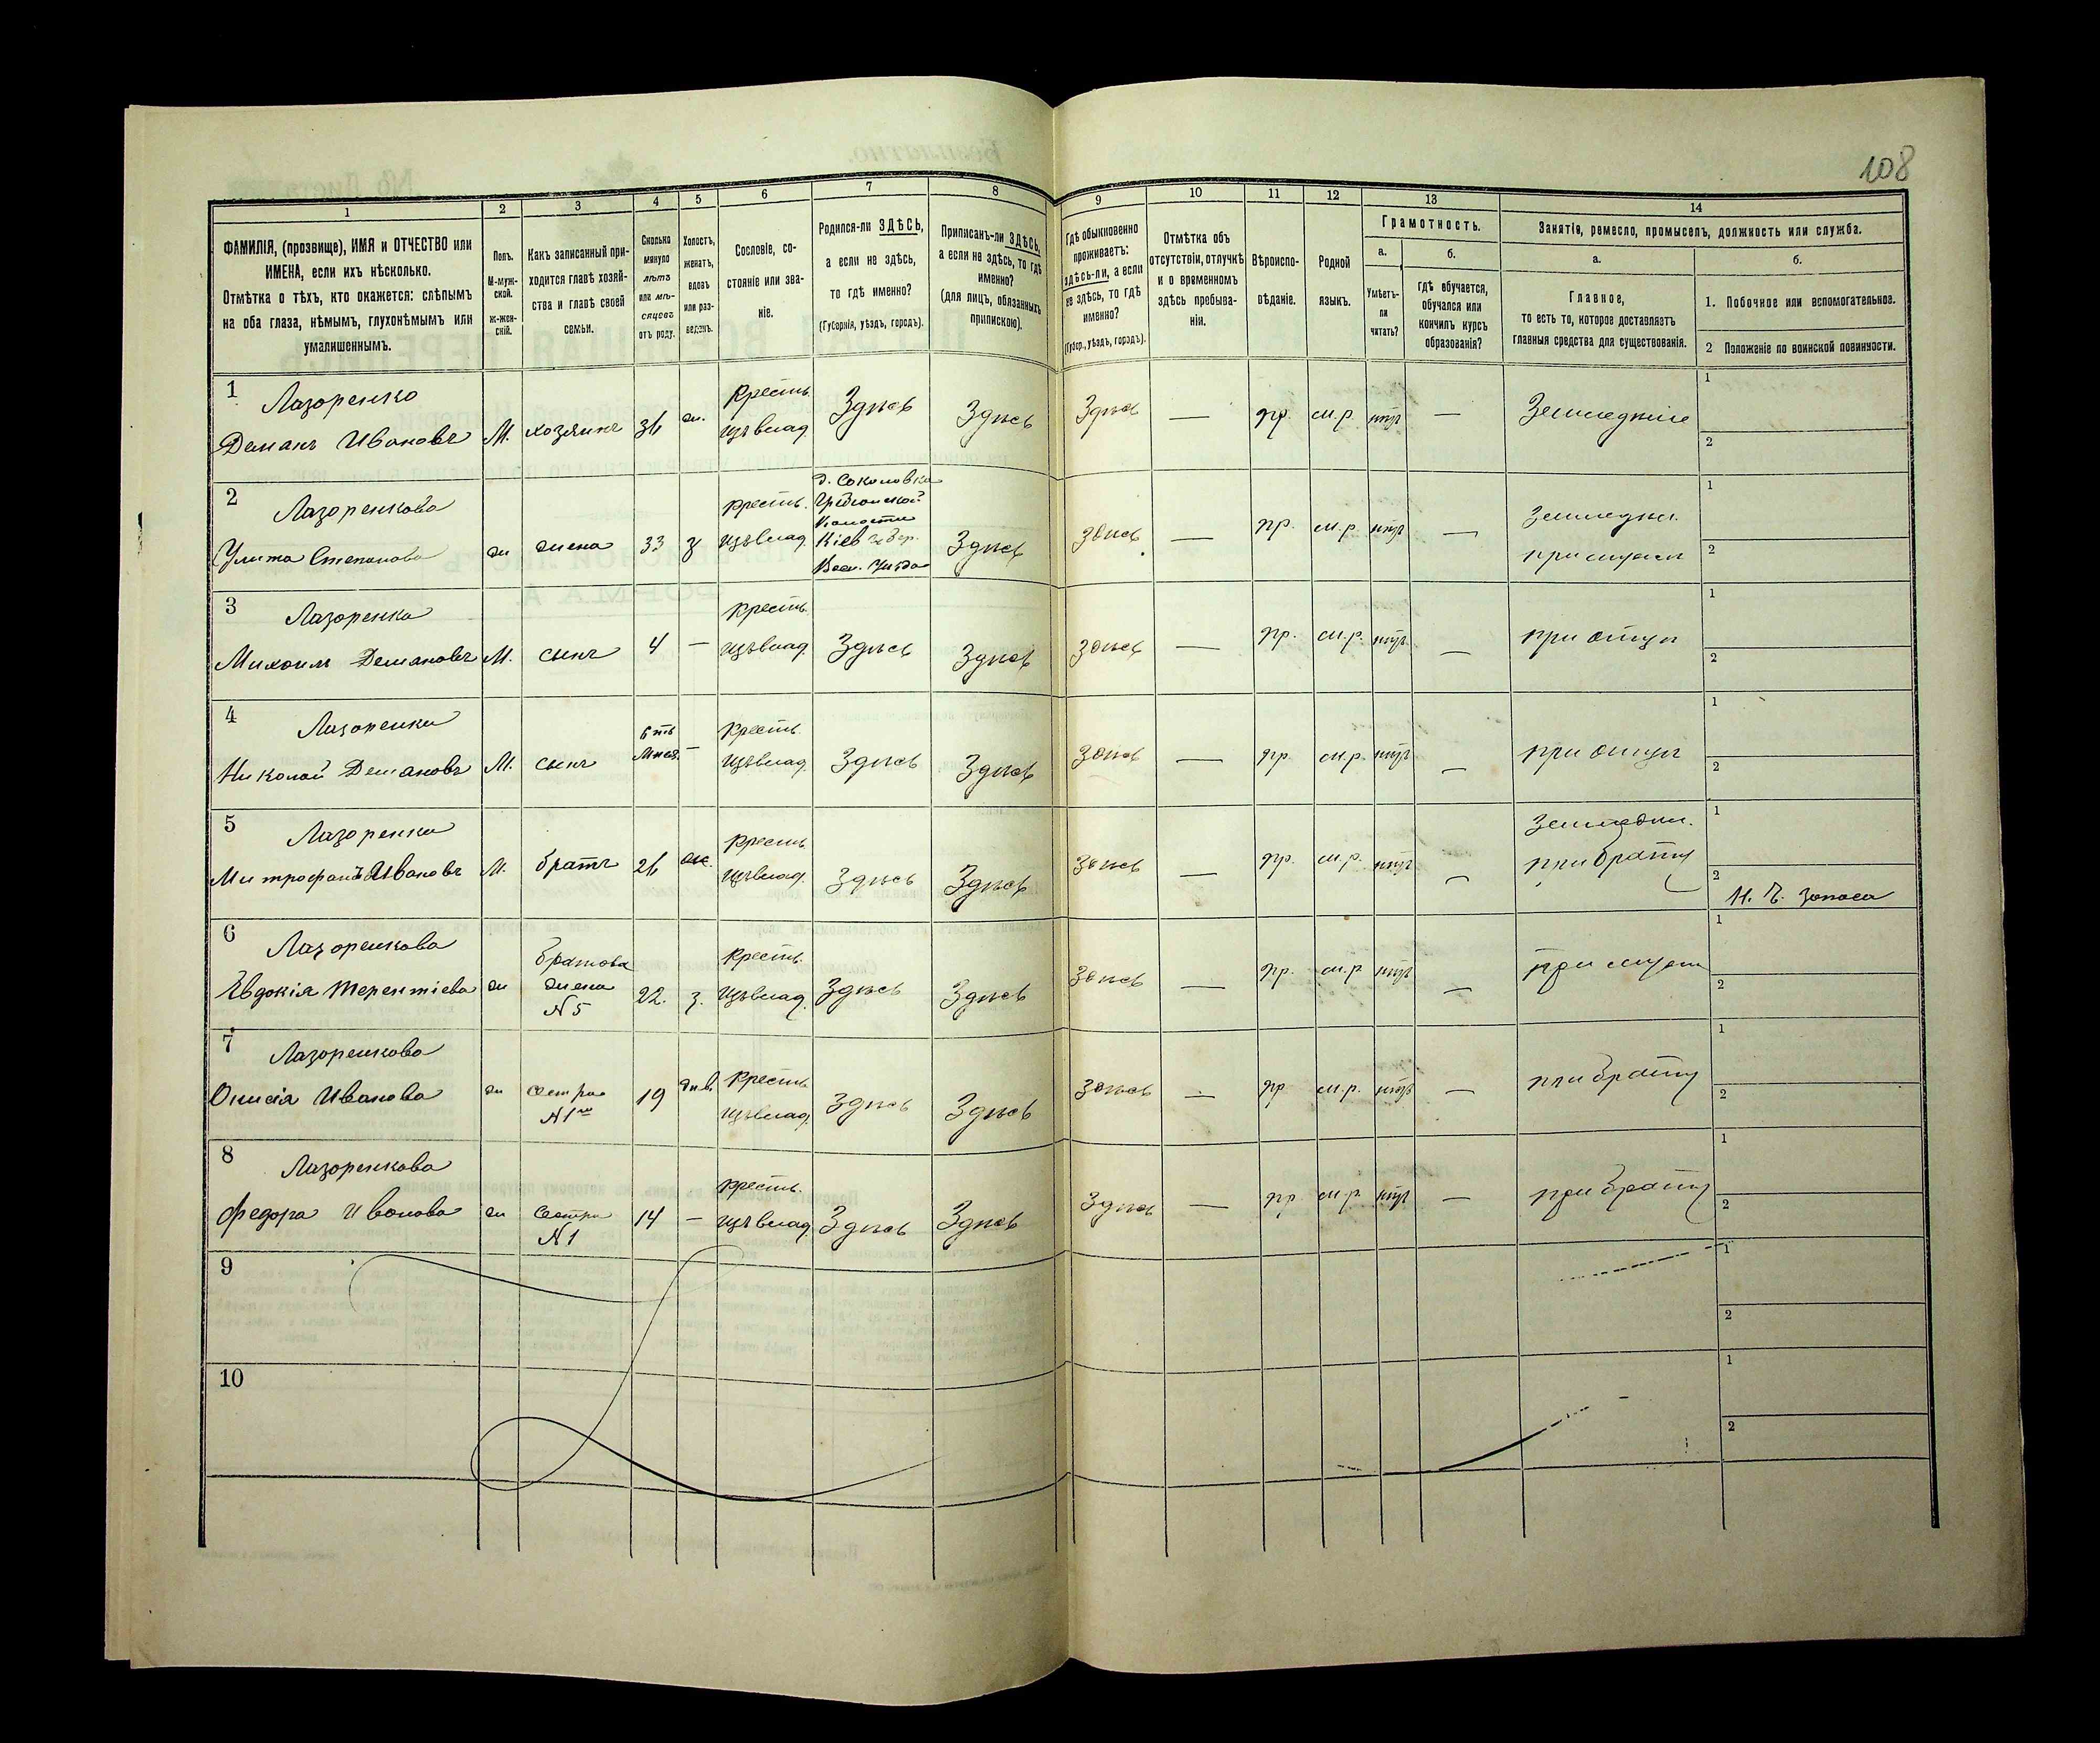 108
1
2
3
4
5
6
7
8
9
10
11
12
13
14
ФАМИЛІЯ, (прозвище), ИМЯ и ОТЧЕСТВО или
ИМЕНА, если ихъ нѣсколько.
Отмѣтка о тѣхъ, кто окажется: слѣпымъ
на оба глаза, нѣмымъ, глухонѣмымъ или
умалишеннымъ.
Полъ.
М-муж-
ской.
ж-жен-
скій.
Какъ записанный при-
ходится главѣ хозяй-
ства и главѣ своей
семьи.
Сколько
минуло
лѣтъ
или мѣ-
сяцевъ
отъ роду.
Холостъ,
женатъ,
вдовъ
или раз-
веденъ.
Сословіе, со-
стояніе или зва-
ніе.
Родился-ли ЗДѢСЬ,
а если не здѣсь,
то гдѣ именно?
(Губернія, уѣздъ, городъ).
Приписанъ-ли ЗДѢСЬ,
а если не здѣсь, то гдѣ
именно?
(для лицъ, обязанныхъ
припискою).
Гдѣ обыкновенно
проживаетъ:
здѣсь-ли, а если
не здѣсь, то гдѣ
именно?
(Губер., уѣздъ, городъ).
Отмѣтка объ
отсутствіи, отлучкѣ
и о временномъ
здѣсь пребыва-
ніи.
Вѣроиспо-
вѣданіе.
Родной
языкъ.
Грамотность.
а.
б.
Умѣетъ-
ли
читать?
гдѣ обучается,
обучался или
кончилъ курсъ
образованія?
Занятіе, ремесло, промыселъ, должность или служба.
а.
б.
Главное,
то есть то, которое доставляетъ
главныя средства для существованія.
1. Побочное или вспомогательное.
2 Положеніе по воинской повинности.
1
Лазоренко
Демянъ Ивановъ
М.
хозяинъ
ж.
Крестъ.
Здѣсь
Здѣсь
Здѣсь
—
пр.
м.р.
—
Земледѣліе
1
2
2
Лазоренкова
Улита Степанова
ж
жена
33
з
крестъ.
д. Соколовка
Кіев Губер.
Здѣсь
здѣсь
—
пр.
м.р.
—
земледѣл.
при мужѣ
1
2
3
Лазоренко
Михаилъ Демяновъ
М.
сынъ
4
—
крестъ.
Здѣсь
Здѣсь
здѣсь
—
пр.
м.р.
—
при отцѣ
1
2
4
Лазоренко
Николай Демяновъ
М.
сынъ
—
крестъ.
Здѣсь
Здѣсь
здѣсь
—
пр.
м.р.
—
при отцѣ
1
2
5
Лазоренко
Митрофанъ Ивановъ
М.
братъ
26
ж.
крестъ.
Здѣсь
Здѣсь
здѣсь
—
пр.
м.р.
—
земледѣл.
при братѣ
1
2
Н. Ч. запаса
6
Лазоренкова
Евдокія Терентіева
ж
братова
жена
N 5
22.
з.
крестъ.
Здѣсь
Здѣсь
здѣсь
—
пр.
м.р
—
при мужѣ
1
2
7
Лазоренкова
Онисія Иванова
ж
сестра
N 1го
19
дѣв.
Крестъ
Здѣсь
Здѣсь
здѣсь
—
пр.
м.р.
—
при братѣ
1
2
8
Лазоренкова
Федора Иванова
ж
сестра
N 1
14
—
крестъ.
Здѣсь
Здѣсь
Здѣсь
—
пр
м.р.
—
при братѣ
1
2
9
1
2
10
1
2